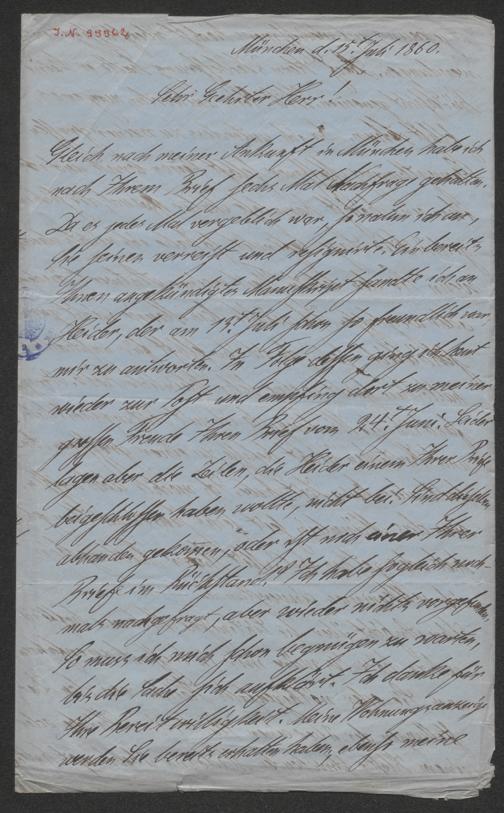 J.N. 99962
München d. 15. Juli 1860.
Sehr Geehrter Herr!
Gleich nach meiner Ankunft in München habe ich
nach Ihrem Brief sechs Mal Nachfrage gehalten.
Da es jedes Mal vergeblich war, so nahm ich an,
Sie seien verreist und resignirte. Ein bereits
Ihnen angekündigtes Manuskript sandte ich an
Heider, der am 13t Juli schon so freundlich war
mir zu antworten. In Folge dessen ging ich heut
wieder zur Post und empfing dort zu meiner
grossen Freude Ihren Brief vom 24t Juni. Leider
lagen aber die Zeilen, die Heider einem Ihrer Briefe
beigeschlossen haben wollte, nicht bei. Sind dieselben
abhanden gekommen, oder ist noch einer Ihrer
Briefe im Rückstand? Ich habe sogleich noch
mals nachgefragt, aber wieder nichts vorgefunden.
So muss ich mich schon begnügen zu warten,
bis die Sache sich aufklärt. Ich danke für
Ihre Bereitwilligkeit. Meine Wohnungsanzeige
werden Sie bereits erhalten haben, ebenso meine